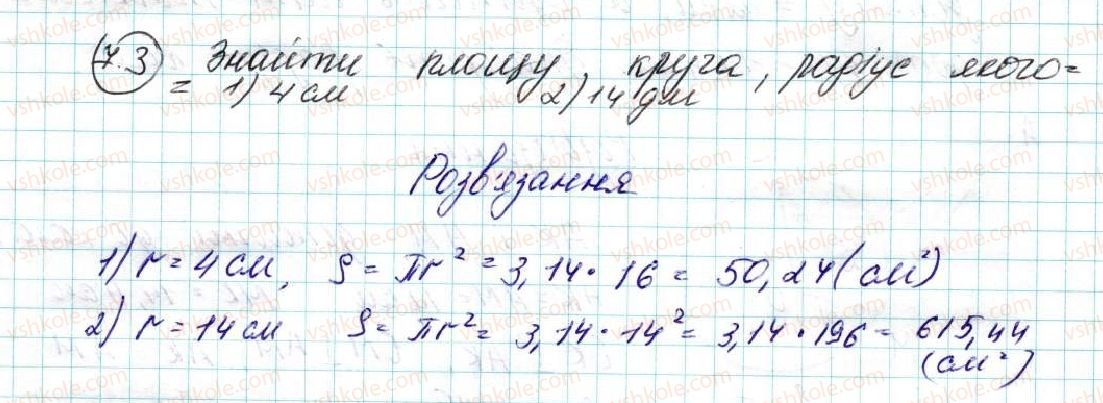 7.3 Знайти площу, круга, радіус якого=
= 1) 4 см 2) 14 дм
Розв'язання
1) r = 4 см, S = πr² = 3,14 · 16 = 50,24 (см²)
2) r = 14 см S = πr² = 3,14 · 14² = 3,14 · 196 = 615,44
(см²)